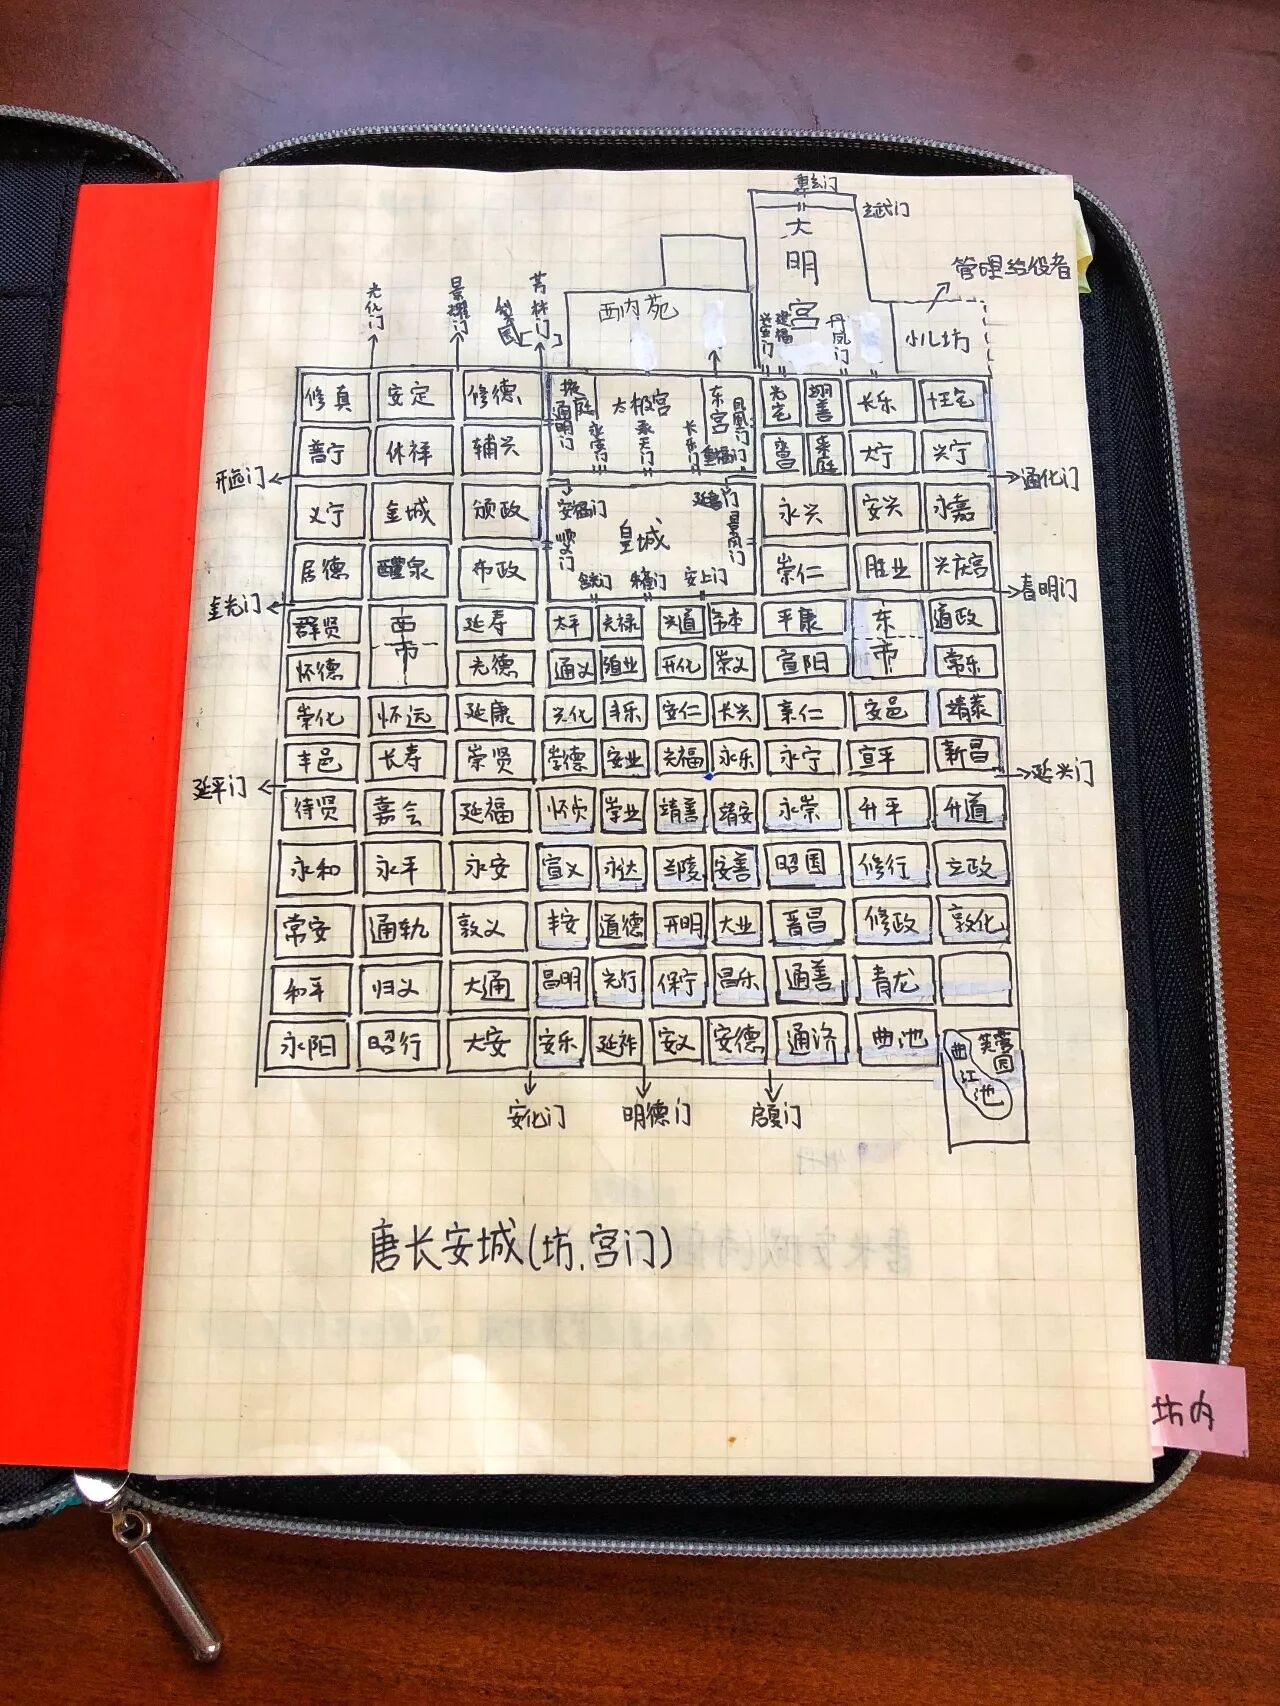 重玄门
玄武门
大明宫
管理给役者
光化门
景耀门
芳林门
西内苑
兴安门
建福
丹凤门
小儿坊
修真 安定 修德 掖庭 太极宫 东宫 光宅 翊善 长乐 十王宅
通明门 永安门 承天门 长乐门 凤凰门 重福门
普宁 休祥 辅兴 永昌 来庭 大宁 兴宁
开远门 通化门
义宁 金城 颁政 安福门 延喜门 永兴 安兴 永嘉
顺义门 皇城 景风门
居德 醴泉 布政 含光门 朱雀门 安上门 崇仁 胜业 兴庆宫
金光门 春明门
群贤 西市 延寿 太平 光禄 兴道 务本 平康 东市 道政
怀德 光德 通义 殖业 开化 崇义 宣阳 常乐
崇化 怀远 延康 兴化 丰乐 安仁 长兴 亲仁 安邑 靖恭
丰邑 长寿 崇贤 崇德 安业 光福 永乐 永宁 宣平 新昌
延平门 延兴门
待贤 嘉会 延福 怀贞 崇业 靖善 靖安 永崇 升平 升道
永和 永平 永安 宣义 永达 兰陵 安善 昭国 修行 立政
常安 通轨 敦义 丰安 道德 开明 大业 晋昌 修政 敦化
和平 归义 大通 昌明 光行 保宁 昌乐 通善 青龙
永阳 昭行 大安 安乐 延祚 安义 安德 通济 曲池 曲江池 芙蓉园
安化门 明德门 启夏门
唐长安城(坊、宫门)
坊内